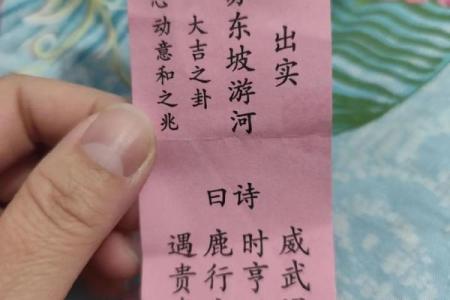 出实
东坡游河
大吉之卦
动意和之兆
诗曰
威武
时亨
鹿行
遇贵